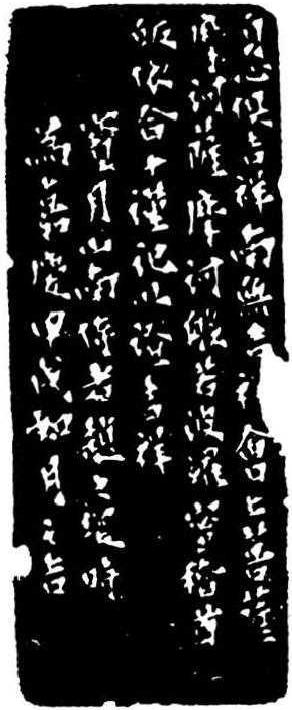 自心俱吉祥南無吉祥會上諸菩薩
摩訶薩摩訶般若波羅蜜稽首
皈依合十謹記以證吉祥
寶月山南侍者趙之琛時
為嘉慶甲戌相月之吉